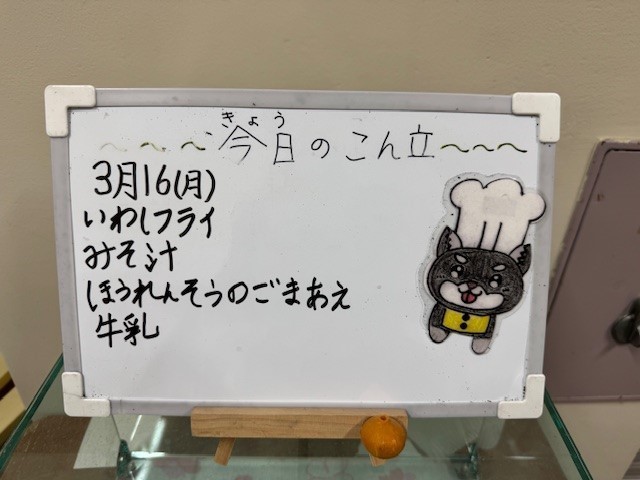 きょう
~~~今日のこん立~~~
3月16(月)
いわしフライ
みそ汁
ほうれんそうのごまあえ
牛乳